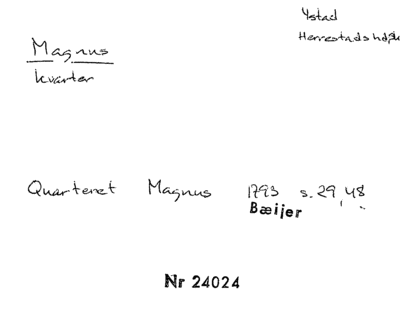 Ystad
Herrestads hd, Sk
Magnus
kvarter
Quarteret Magnus 1793 s. 29, 48
Bæijer
Nr 24024